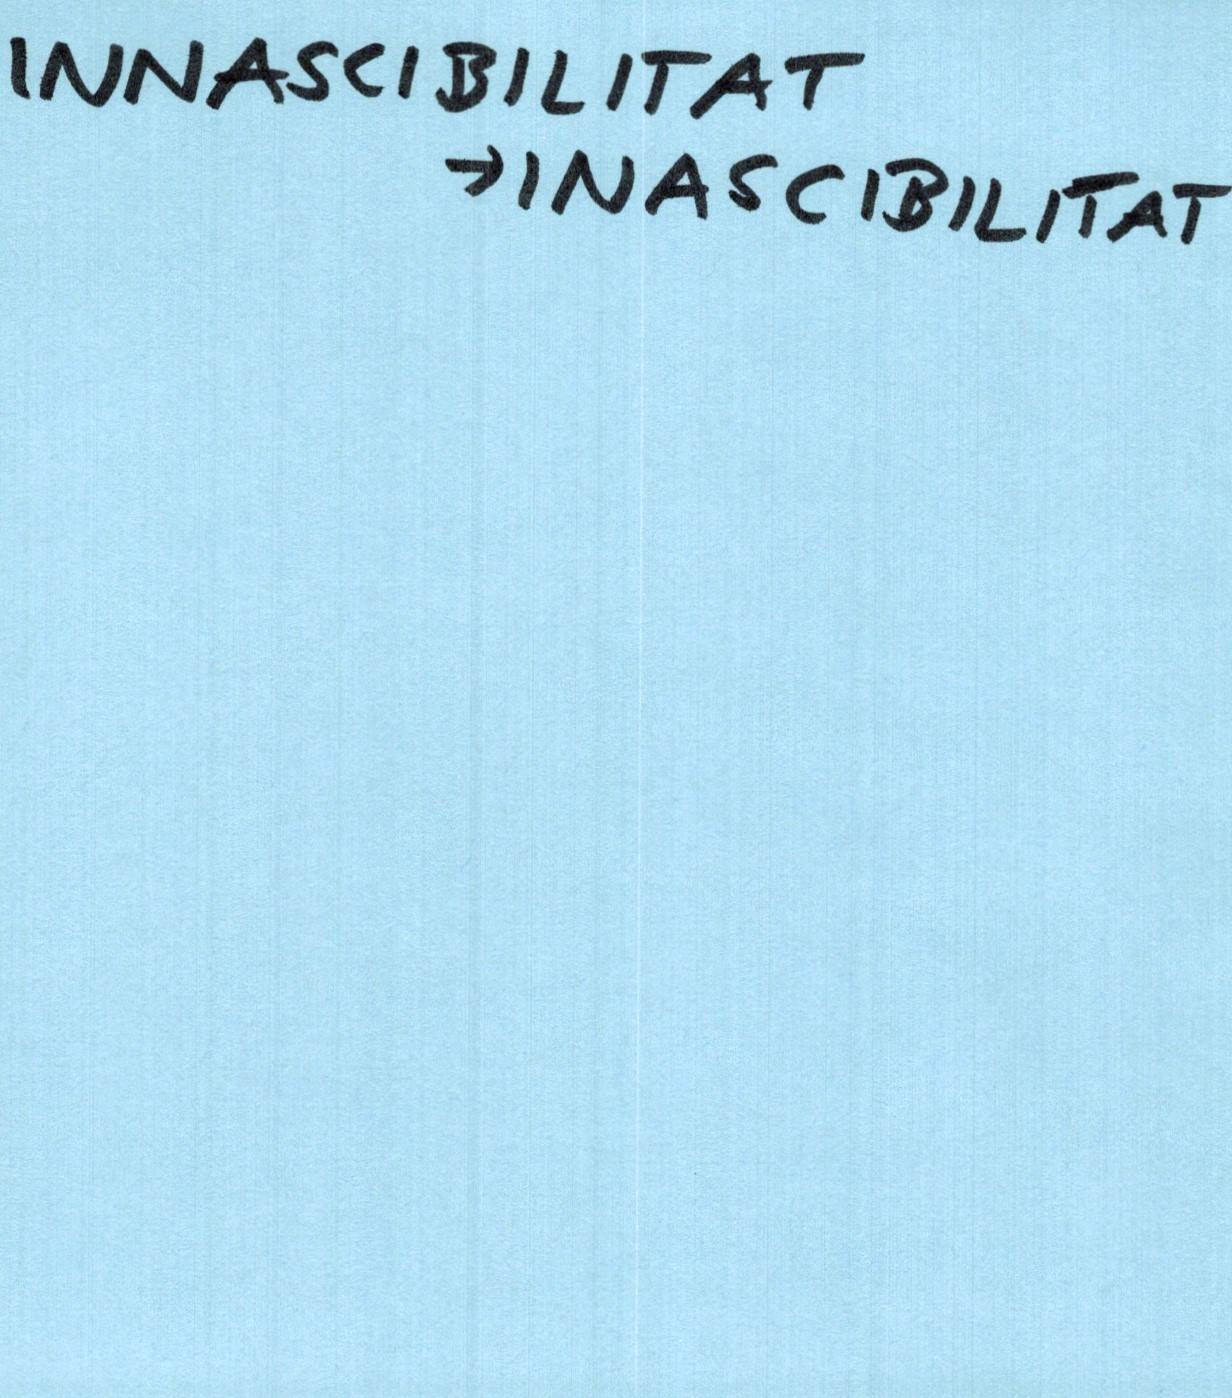 INNASCIBILITAT
→INASCIBILITAT